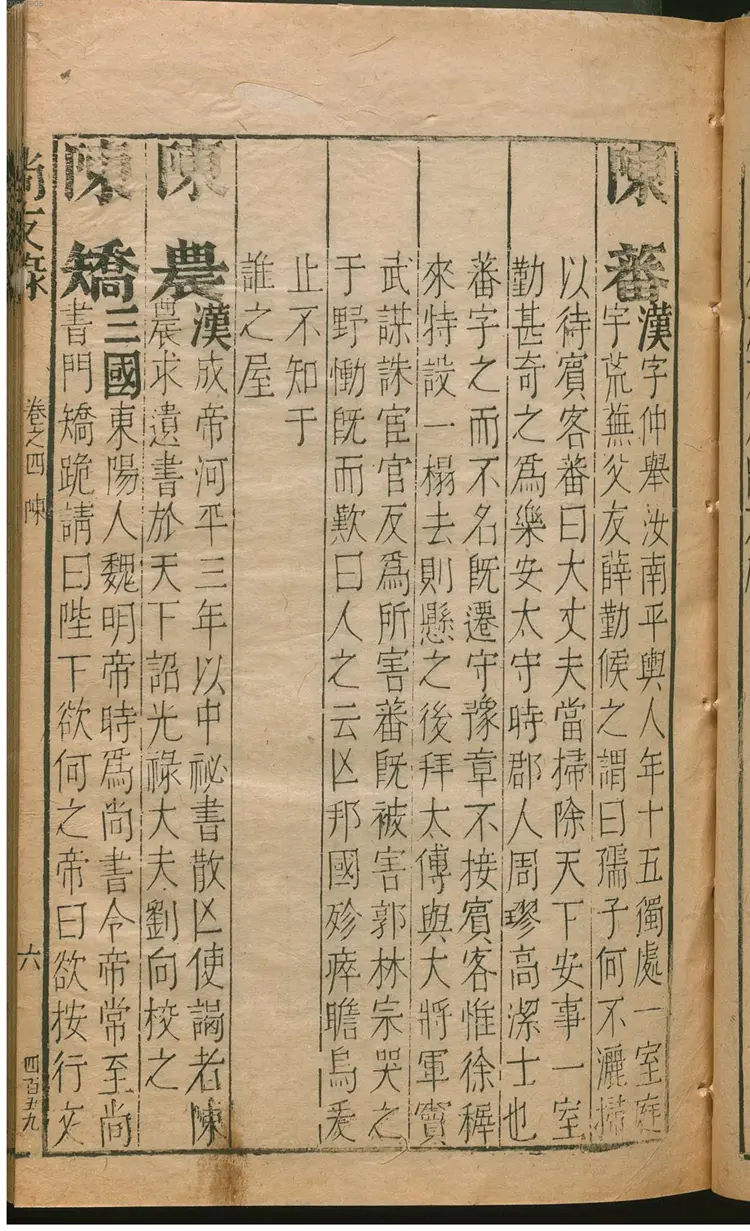 陳蕃漢字仲舉汝南平輿人年十五獨處一室庭
宇荒蕪父友薛勤候之謂曰孺子何不灑掃
以待賓客蕃曰大丈夫當掃除天下安事一室
勤甚奇之爲樂安太守時郡人周璆高潔士也
蕃字之而不名旣遷守豫章不接賓客惟徐穉
來特設一榻去則懸之後拜太傅與大將軍竇
武謀誅宦官反爲所害蕃旣被害郭林宗哭之
于野慟旣而歎曰人之云亾邦國殄瘁瞻烏爰
止不知于
誰之屋
陳農漢成帝河平三年以中祕書散亾使謁者陳
農求遺書於天下詔光祿大夫劉向校之
陳矯三國東陽人魏明帝時爲尚書令帝常至尚
書門矯跪請曰陛下欲何之帝曰欲按行文
尚友錄 卷之四 陳 六 四百五九